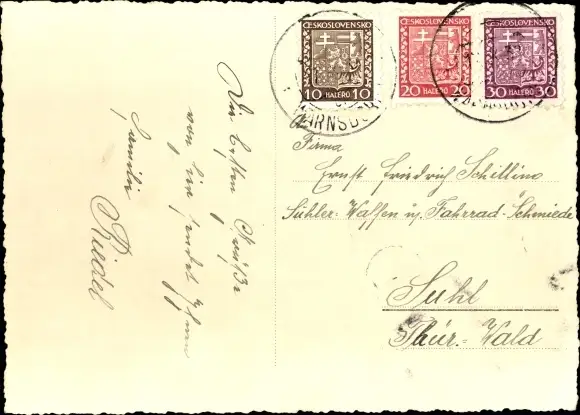 Die besten Grüße
von hier sendet Ihnen
Familie
Riedel
ČESKOSLOVENSKO
10 HALÉŘŮ 10
ČESKOSLOVENSKO
20 HALÉŘŮ 20
ČESKOSLOVENSKO
30 HALÉŘŮ 30
WARNSDORF
Firma
Ernst Friedrich Schilling
Suhler-Waffen u. Fahrrad-Schmiede
Suhl
Thür.-Wald